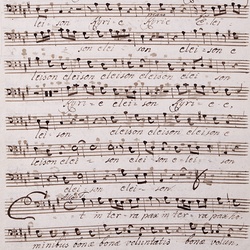 lei - son Kyrie Kyrie elei
son elei - son elei
leison eleison eleison eleison eleison
Kyrie elei - son Kyrie e
lei - son eleison eleison eleison
son elei - son elei - son elei
elei - son
Et in terra pax in terra pax ho
minibus bonæ bonæ voluntatis bonæ volun